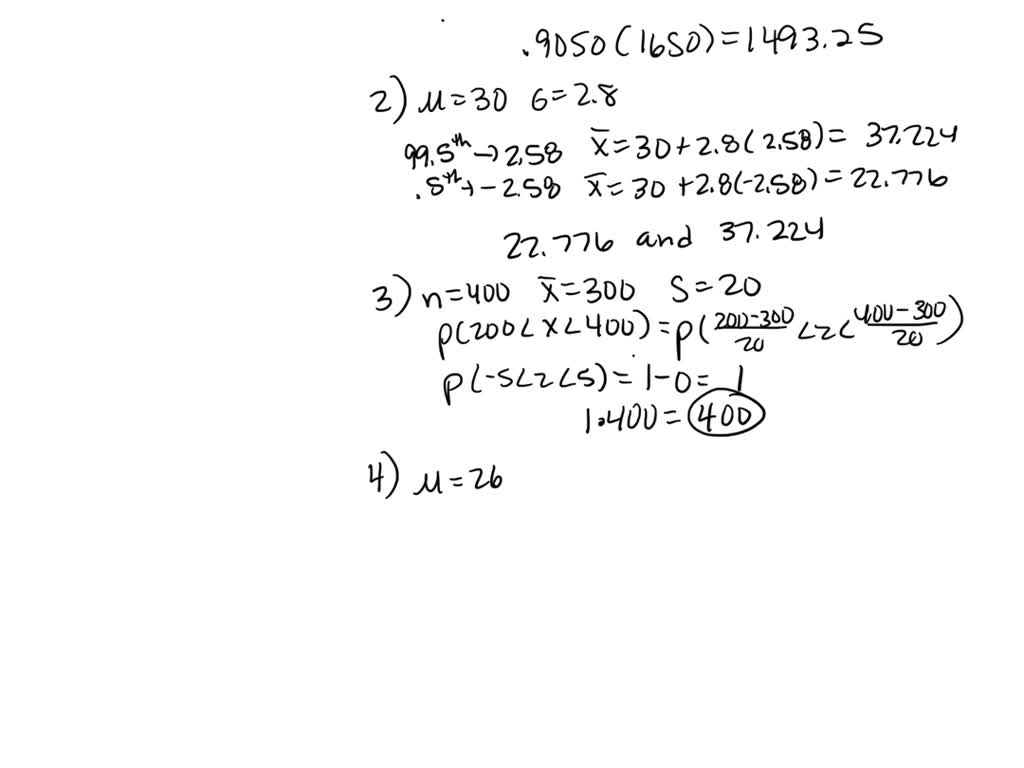 .9050(1650)=1493.25
2) μ=30 σ=2.8
99.5th→2.58 x̄=30+2.8(2.58)=37.224
.5th→-2.58 x̄=30+2.8(-2.58)=22.776
22.776 and 37.224
3) n=400 x̄=300 S=20
P(200<x<400)=P(200-300/20<z<400-300/20)
P(-5<z<5)=1-0=1
1·400=400
4) μ=26